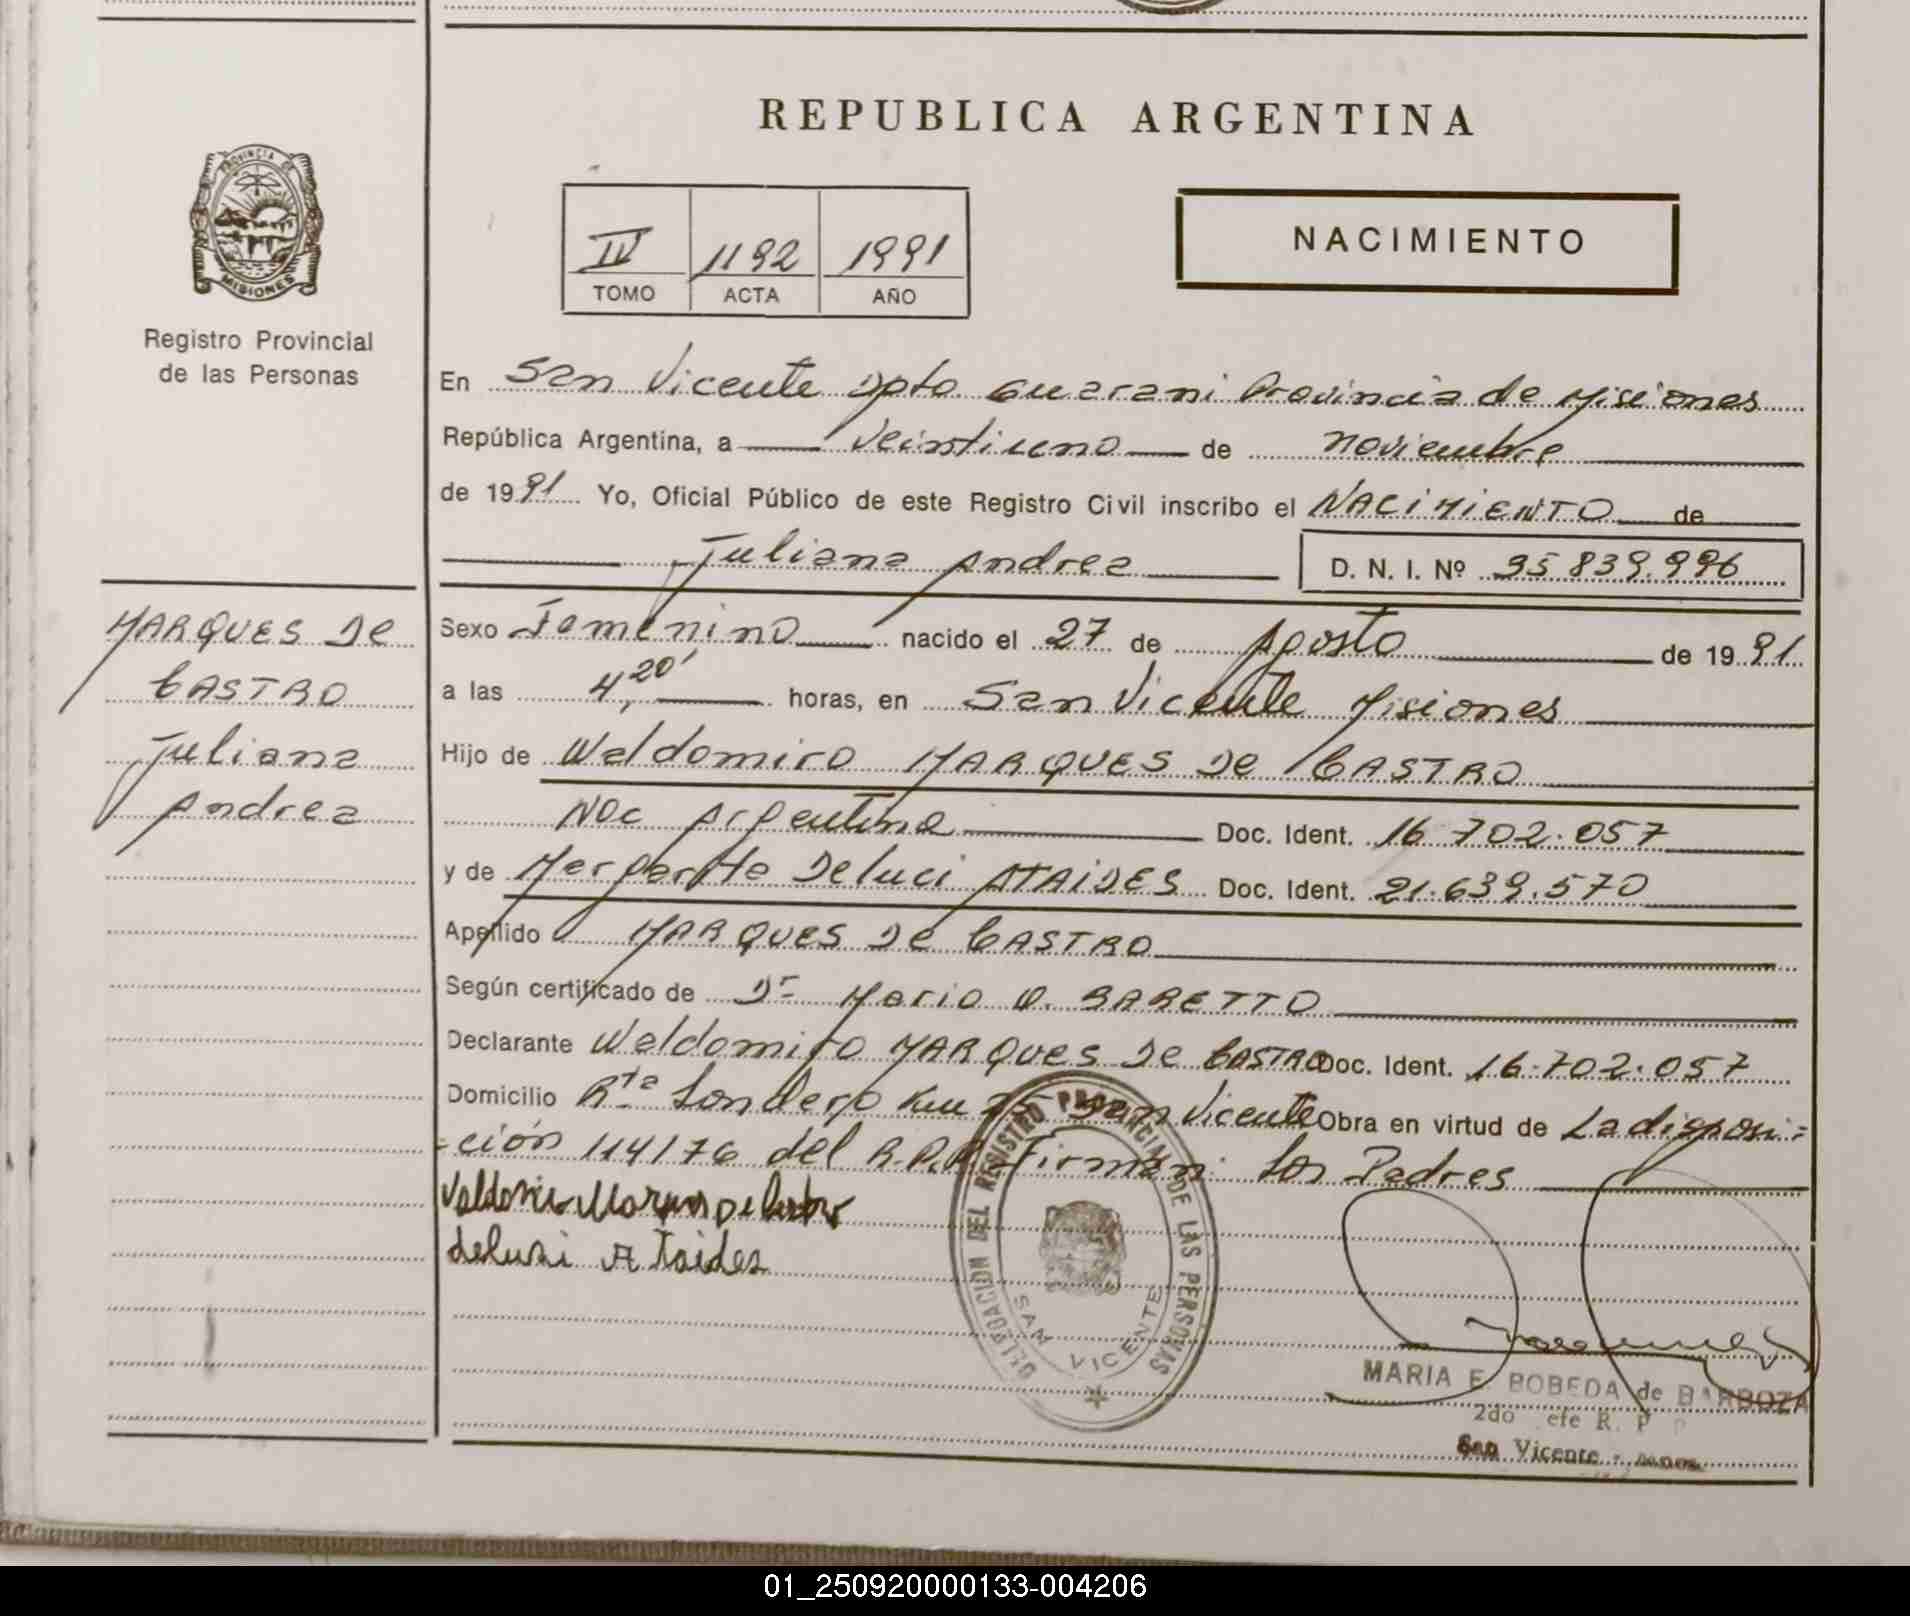 REPUBLICA ARGENTINA
PROVINCIA DE MISIONES
Registro Provincial
de las Personas
IV 1192 1991
TOMO ACTA AÑO
NACIMIENTO
En San Vicente Dpto. Guarani Provincia de Misiones
República Argentina, a veintiuno de noviembre
de 1991 Yo, Oficial Público de este Registro Civil inscribo el NACIMIENTO de
Juliana Andrea D. N. I. Nº 35 839.996
MARQUES De
CASTRO
Juliana
Andrea
Sexo Femenino nacido el 27 de Agosto de 1991
a las 4,20' horas, en San Vicente Misiones
Hijo de Waldomiro MARQUES De CASTRO
Nac Argentina Doc. Ident. 16 702.057
y de Margarita Deluci ATAIDES Doc. Ident. 21.639.570
Apellido MARQUES De CASTRO
Según certificado de Dr Mario O. BARETTO
Declarante Waldomiro MARQUES De CASTRO Doc. Ident. 16.702.057
Domicilio Rta Londero Km 25 San Vicente Obra en virtud de La disposi=
=ción 114176 del R.P.P. Firman: Los Padres
Marques De Castro
deluci Ataides
DELEGACION DEL REGISTRO PROVINCIAL DE LAS PERSONAS
SAN VICENTE
MARIA E. BOBEDA de BARBOZA
2do efe R. P P
San Vicente -
01_250920000133-004206